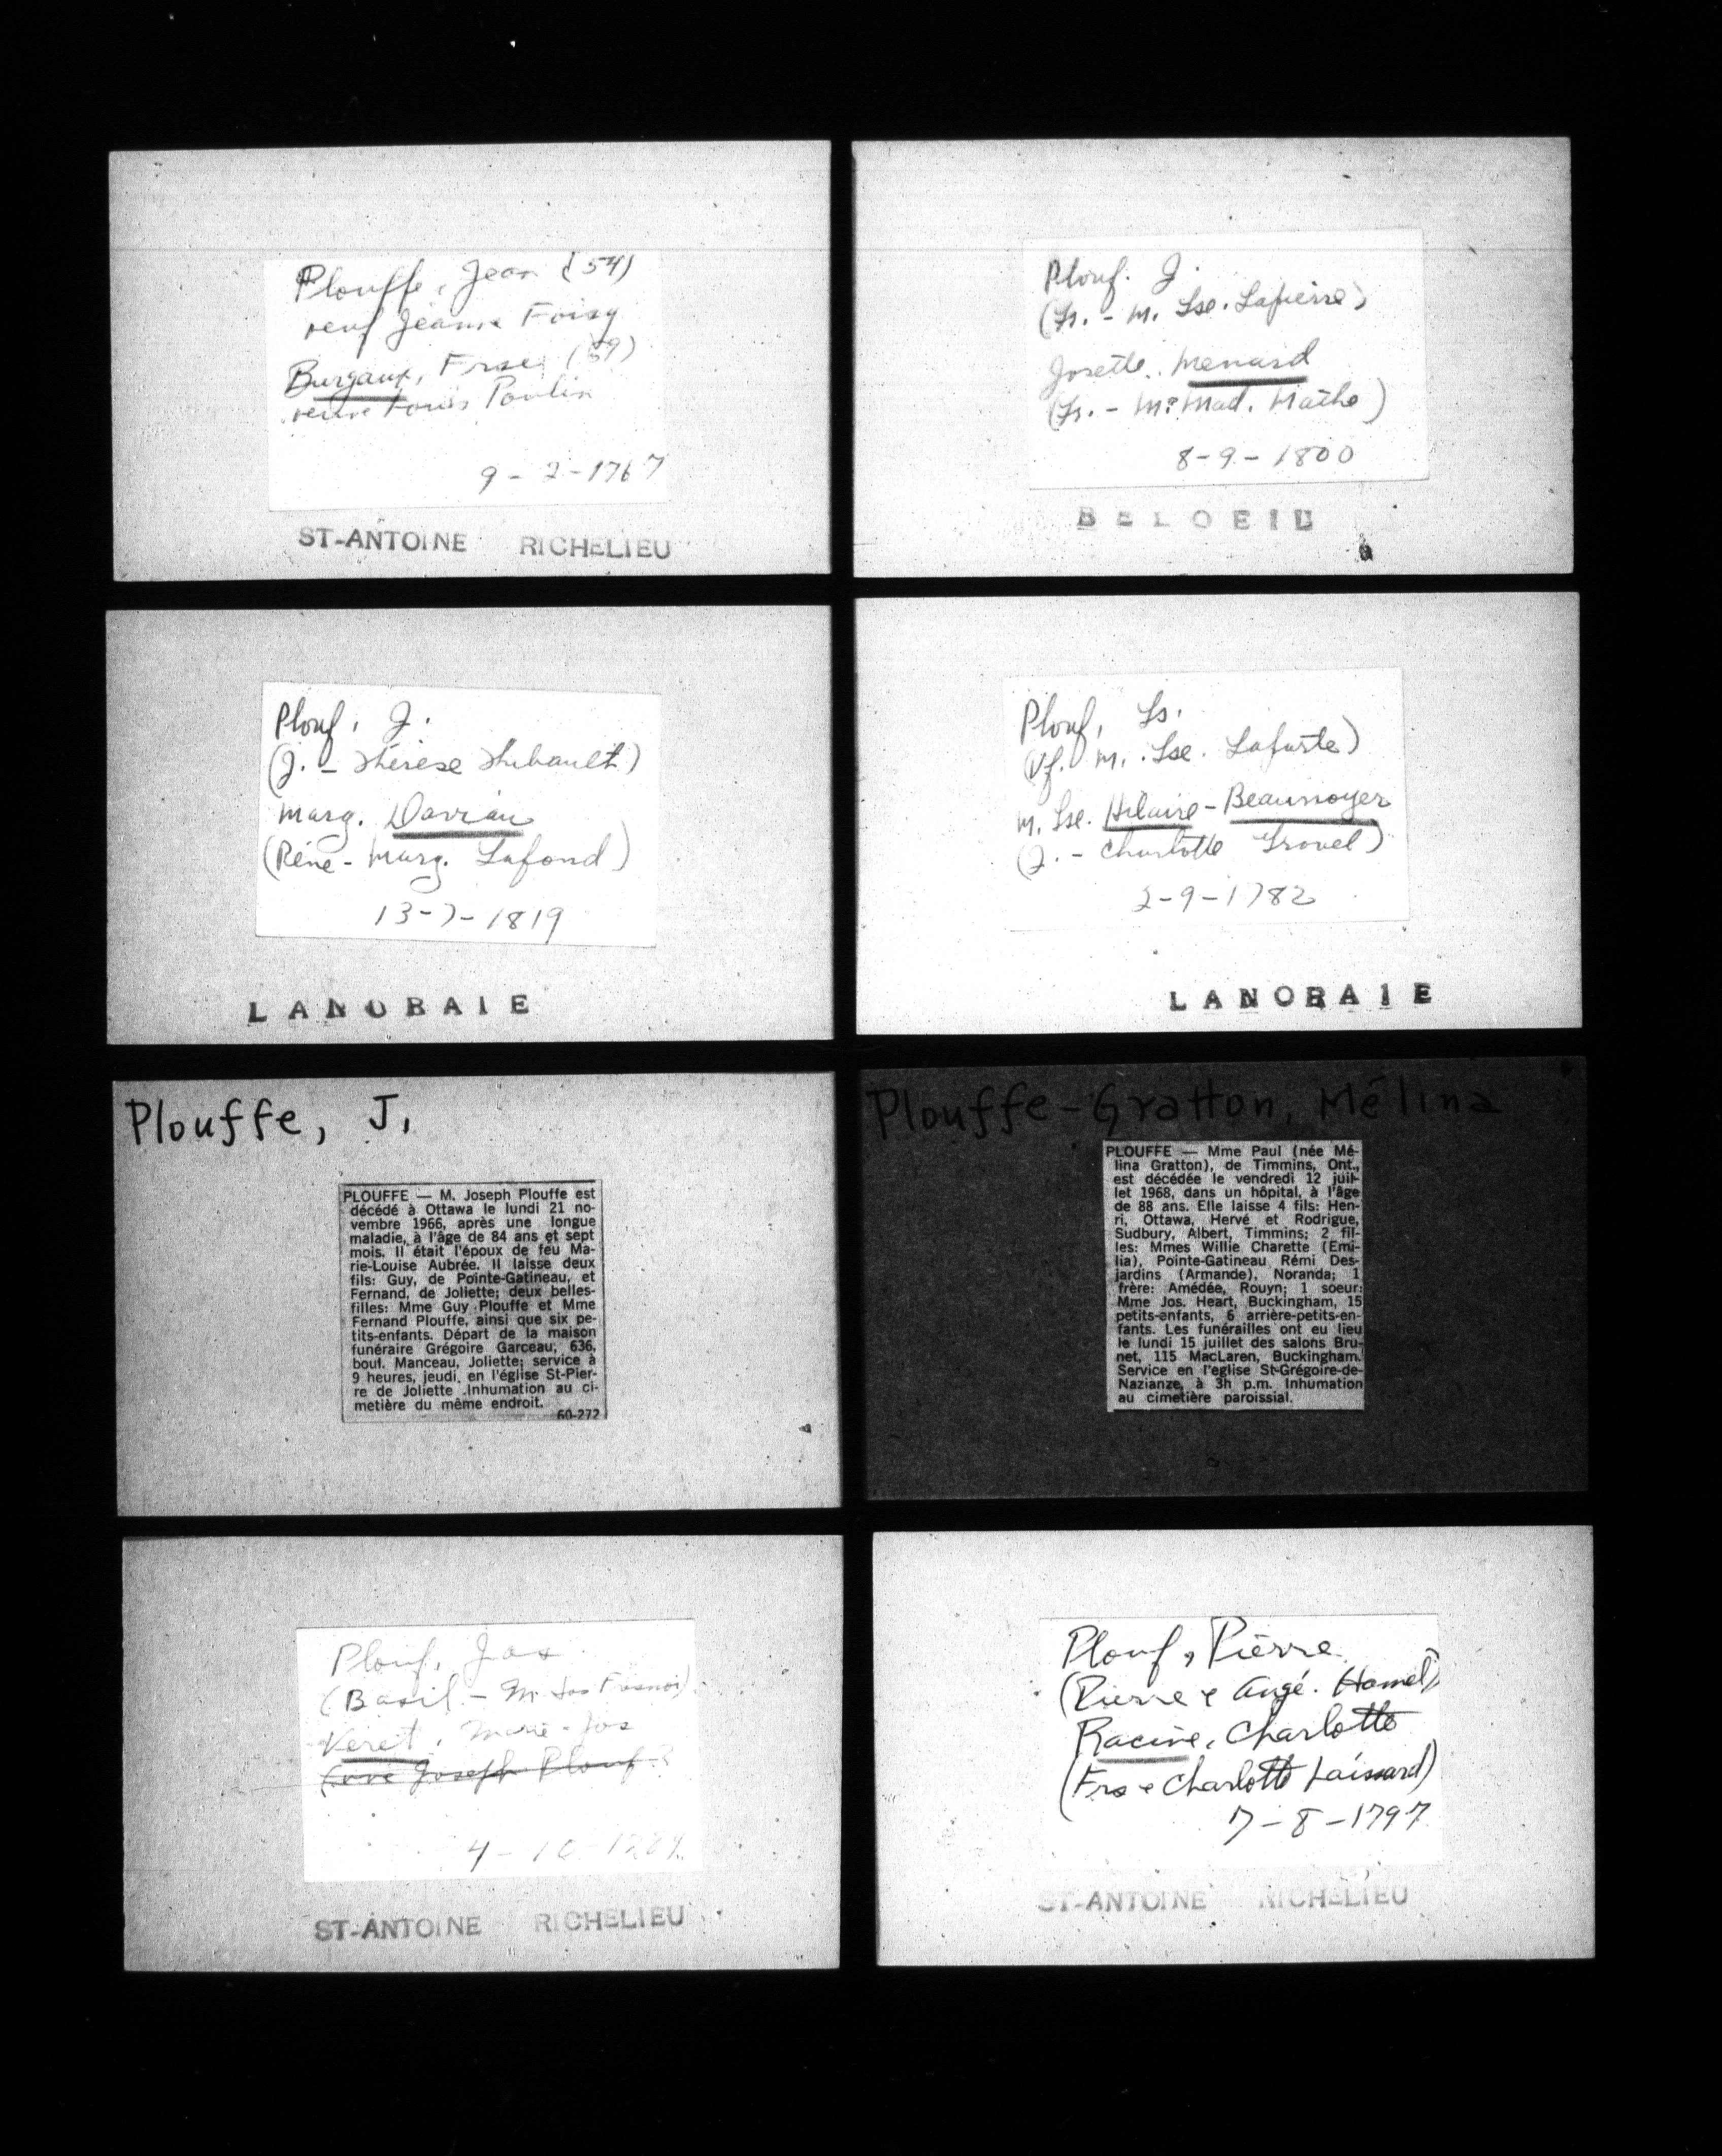 Plouffe, Jean (54)
veuf Jeanne Foisy
Burgaux, Frse (59)
veuve Louis Poulin
9-2-1767
ST-ANTOINE RICHELIEU
Plouf. J.
(Ls. - M. Lse. Lapierre)
Josette Menard
(Ls. - M. Mad. Mathe)
8-9-1800
BELOEIL
Plouf, J.
(J. - Thérèse Thibault)
Marg. Daviau
(Réné - Marg. Lafond)
13-7-1819
LANORAIE
Plouf, Ls.
(Vf. M. Lse. Laforte)
M. Lse. Hilaire-Beaunoyer
(J. - Charlotte Gronel)
2-9-1782
LANORAIE
Plouffe, J.
PLOUFFE — M. Joseph Plouffe est
décédé à Ottawa le lundi 21 no-
vembre 1966, après une longue
maladie, à l'âge de 84 ans et sept
mois. Il était l'époux de feu Ma-
rie-Louise Aubrée. Il laisse deux
fils: Guy, de Pointe-Gatineau, et
Fernand, de Joliette; deux belles-
filles: Mme Guy Plouffe et Mme
Fernand Plouffe, ainsi que six pe-
tits-enfants. Départ de la maison
funéraire Grégoire Garceau, 636,
boul. Manceau, Joliette; service à
9 heures, jeudi, en l'église St-Pier-
re de Joliette .Inhumation au ci-
metière du même endroit.
60-272
Plouffe-Gratton, Mélina
PLOUFFE — Mme Paul (née Mé-
lina Gratton), de Timmins, Ont.,
est décédée le vendredi 12 juil-
let 1968, dans un hôpital, à l'âge
de 88 ans. Elle laisse 4 fils: Hen-
ri, Ottawa, Hervé et Rodrigue,
Sudbury, Albert, Timmins; 2 fil-
les: Mmes Willie Charette (Emi-
lia), Pointe-Gatineau Rémi Des-
jardins (Armande), Noranda; 1
frère: Amédée, Rouyn; 1 soeur:
Mme Jos. Heart, Buckingham, 15
petits-enfants, 6 arrière-petits-en-
fants. Les funérailles ont eu lieu
le lundi 15 juillet des salons Bru-
net, 115 MacLaren, Buckingham.
Service en l'eglise St-Grégoire-de-
Nazianze, à 3h p.m. Inhumation
au cimetière paroissial.
Plouf, Jos
(Basil - M. Jos
Veret, Marie-Jos
Joseph Plouf
4-10
ST-ANTOINE RICHELIEU
Plouf, Pierre
(Pierre & Angé. Hamel)
Racine, Charlotte
(Frs & Charlotte Laissard)
7-8-1797
ST-ANTOINE RICHELIEU